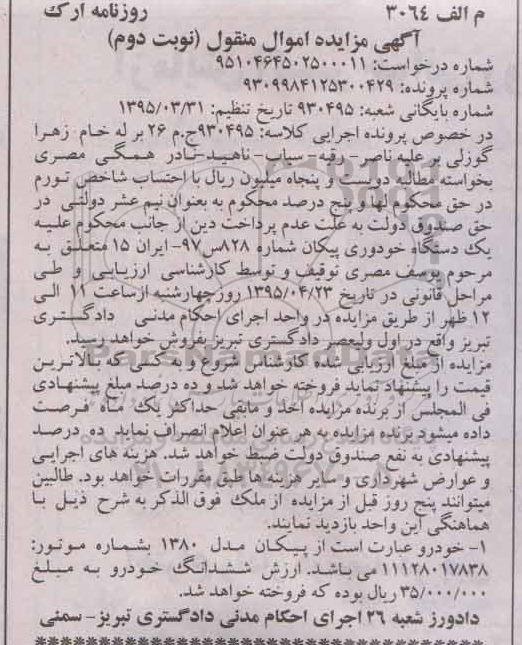 م الف ٣٠٦٤ روزنامه ارک
آگهی مزایده اموال منقول (نوبت دوم)
شماره درخواست: ٩٥١٠٤٦٤٥٠٢٥٠٠٠١١
شماره پرونده: ٩٣٠٩٩٨٤١٢٥٣٠٠٤٢٩
شماره بایگانی شعبه: ٩٣٠٤٩٥ تاریخ تنظیم: ١٣٩٥/٠٣/٣١
در خصوص پرونده اجرایی کلاسه: ٩٣٠٤٩٥ج.م ٢٦ بر له خام زهرا
گوزلی بر علیه ناصر- رقیه- سیاب- ناهید-نادر همگی مصری
بخواسته مطالبه دویست و پنجاه میلیون ریال با احتساب شاخص تورم
در حق محکوم لها و پنج درصد محکوم به بعنوان نیم عشر دولتی در
حق صندوق دولت به علت عدم پرداخت دین از جانب محکوم علیه
یک دستگاه خودوری پیکان شماره ٨٢٨س٩٧- ایران ١٥ متعلق به
مرحوم یوسف مصری توقیف و توسط کارشناسی ارزیابی و طی
مراحل قانونی در تاریخ ١٣٩٥/٠٤/٢٣ روزچهارشنبه ازساعت ١١ الی
١٢ ظهر از طریق مزایده در واحد اجرای احکام مدنی دادگستری
تبریز واقع در اول ولیعصر دادگستری تبریز بفروش خواهد رسید.
مزایده از مبلغ ارزیابی شده کارشناس شروع و به کسی که بالاترین
قیمت را پیشنهاد نماید فروخته خواهد شد و ده درصد مبلغ پیشنهادی
فی المجلس از برنده مزایده اخذ و مابقی حداکثر یک ماه فرصت
داده میشود برنده مزایده به هر عنوان اعلام انصراف نماید ده درصد
پیشنهادی به نفع صندوق دولت ضبط خواهد شد. هزینه های اجرایی
و عوارض شهرداری و سایر هزینه ها طبق مقررات خواهد بود. طالبین
میتوانند پنج روز قبل از مزایده از ملک فوق الذکر به شرح ذیل با
هماهنگی این واحد بازدید نمایند.
١- خودرو عبارت است از پیکان مدل ١٣٨٠ بشماره موتور:
١١١٢٨٠١٧٨٣٨ می باشد. ارزش ششدانگ خودرو به مبلغ
٣٥/٠٠٠/٠٠٠ ریال بوده که فروخته خواهد شد.
دادورز شعبه ٢٦ اجرای احکام مدنی دادگستری تبریز- سمنی
ParsNamadData